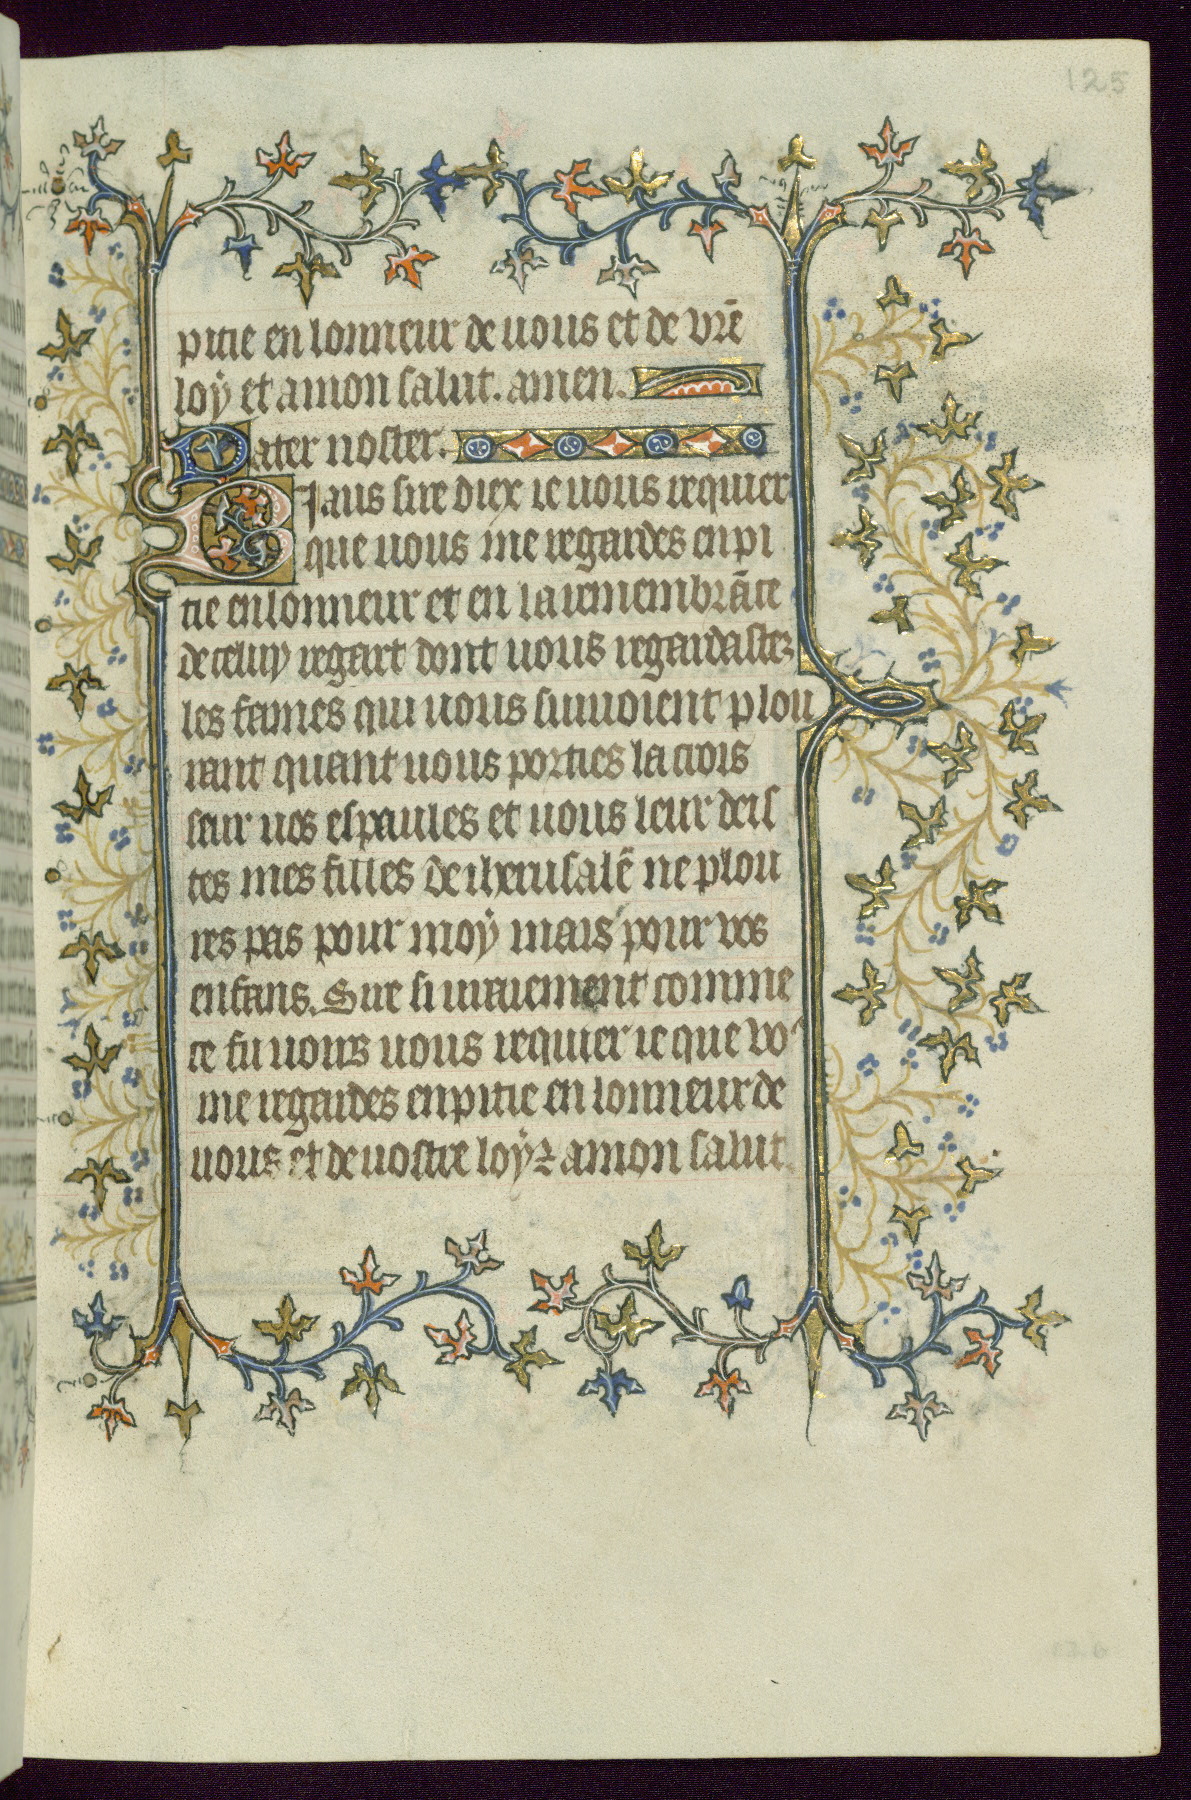 125
pitie en lonneur de uous et de vr̄e
loÿ et a mon salut. amen.
Pater noster.
Biaus sire diex ie uous requier
que uous me regardes en pi
tie en lonneur et en la remembrāce
de celuy regart dont uous regardastez
les fames qui uous siuuoient plou
rant quant uous porties la crois
seur uos espaules et uous leur deis
tes mes filles de iherusalē ne plou
res pas pour moÿ mais pour vos
enfans. Sire si uraiement comme
ce fu uoirs uous requier ie que voꝰ
me regardes en pitie en lonneur de
uous et de uostre loÿ ⁊ a mon salut